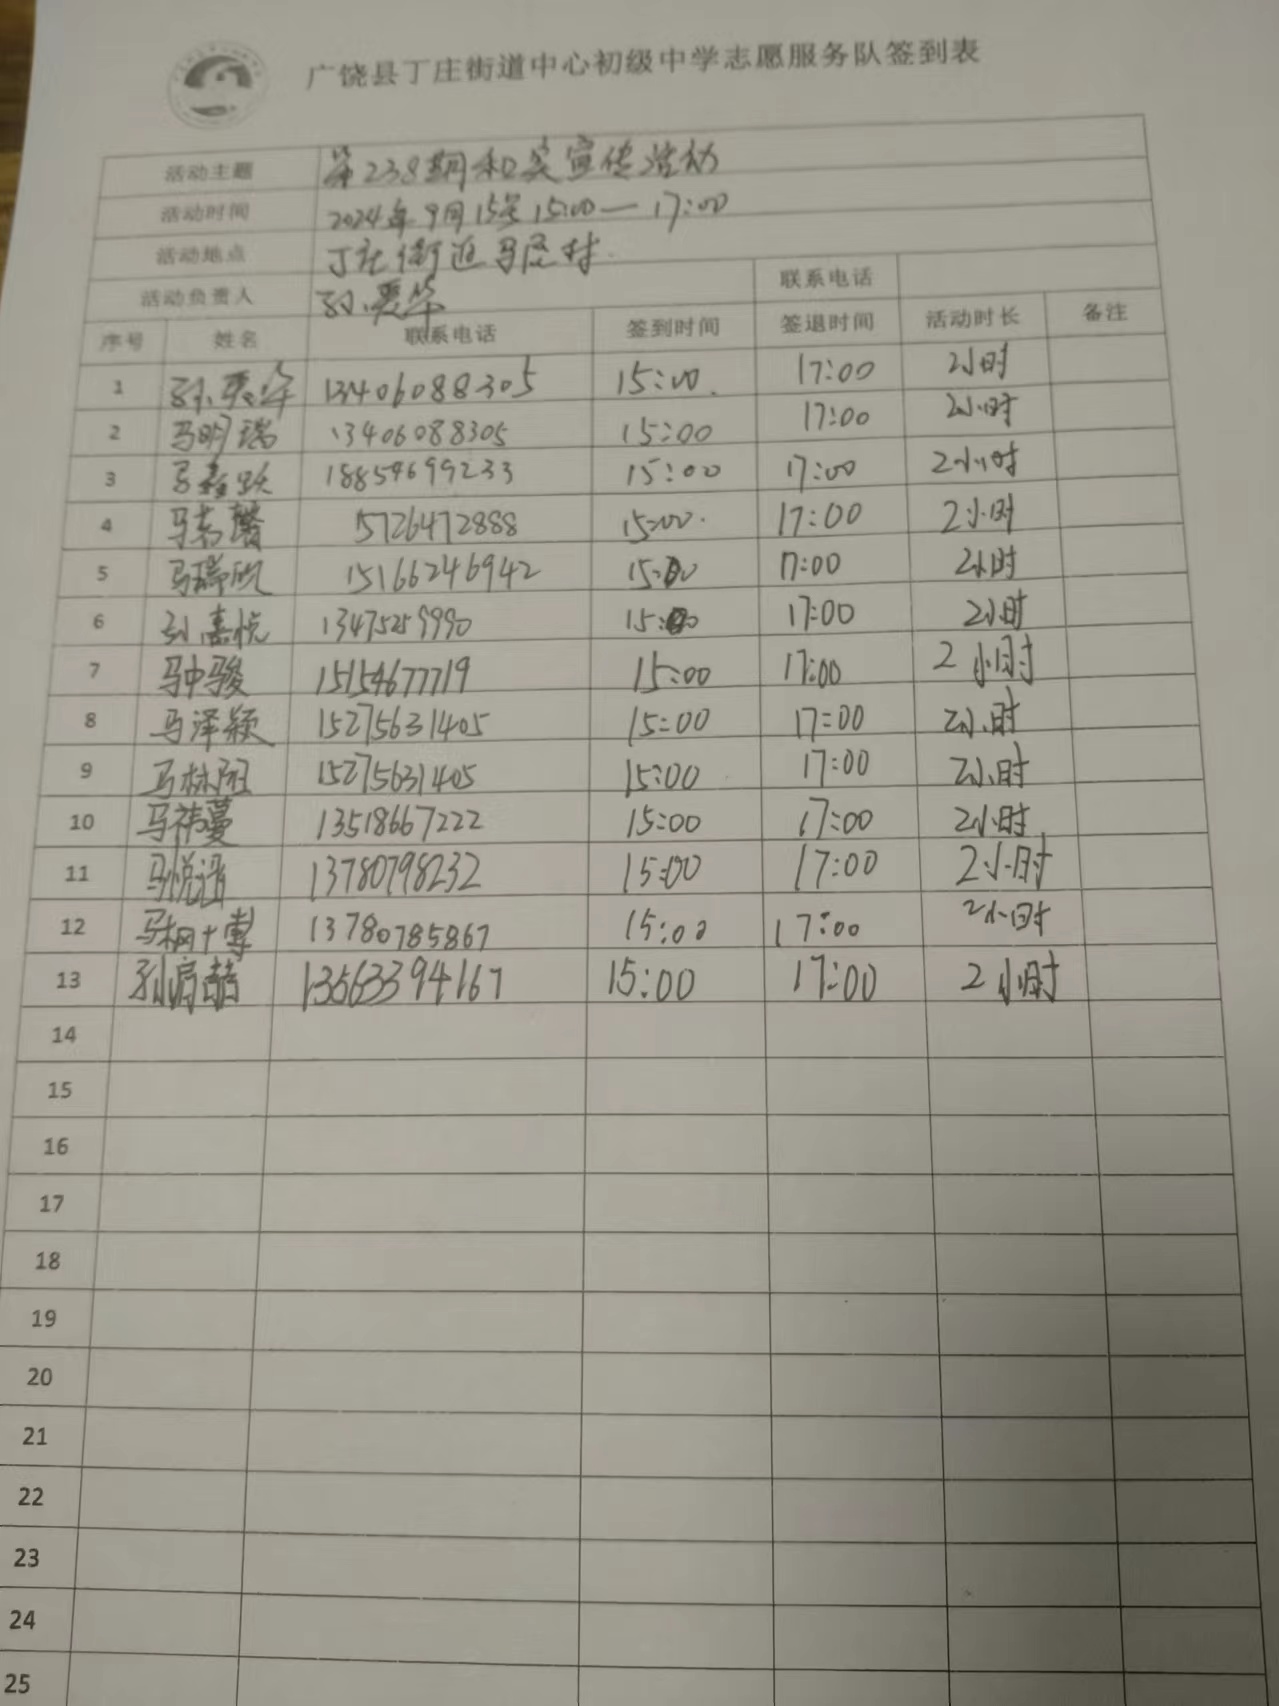 广饶县丁庄街道中心初级中学志愿服务队签到表
活动主题 第238期和美宣传活动
活动时间 2024年9月15号15:00—17:00
活动地点 丁庄街道马疃村
活动负责人 孙 华 联系电话
序号 姓名 联系电话 签到时间 签退时间 活动时长 备注
1 孙 华 13406088305 15:00. 17:00 2小时
2 马明瑞 13406088305 15:00 17:00 2小时
3 马鑫跃 18854699233 15:00 17:00 2小时
4 马若馨 5726472888 15:00. 17:00 2小时
5 马瑞欣 15166246942 15:00 17:00 2小时
6 孙嘉悦 13475259990 15:00 17:00 2小时
7 马中骏 15154677719 15:00 17:00 2小时
8 马泽颖 15275631405 15:00 17:00 2小时
9 马林 15275631405 15:00 17:00 2小时
10 马祎蔓 13518667222 15:00 17:00 2小时
11 马悦涵 13780798232 15:00 17:00 2小时
12 马桐博 13780785867 15:00 17:00 2小时
13 孙高喆 13563394167 15:00 17:00 2小时
14
15
16
17
18
19
20
21
22
23
24
25